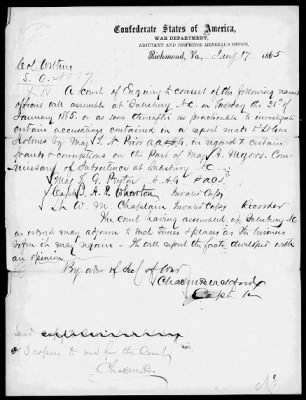 Confederate States of America,
WAR DEPARTMENT,
ADJUTANT AND INSPECTOR GENERAL'S OFFICE,
Richmond, Va., Jany 17 1865
Col Withers
S. O. No
A court of Enquiry to consist of the following named
officers will assemble at Salisbury N.C. on Tuesday the of
January 1865, or as soon thereafter as practicable to investigate
certain accusations contained in a report made to
Holmes by Maj. in regard to certain
frauds & corruptions on the part of Maj. Myers. Com-
missary of Subsistence at Salisbury N.C.
Maj. G. Peyton
Capt. A. Invalid Corps
Lt W. M. Chaplain Invalid Corps Recorder
The court having assembled at Salisbury N.C.
as ordered may adjourn to such times & places as the business
before it may require - It will report the facts developed with
an opinion
By order of Sec of War
3 copies to me for the Court